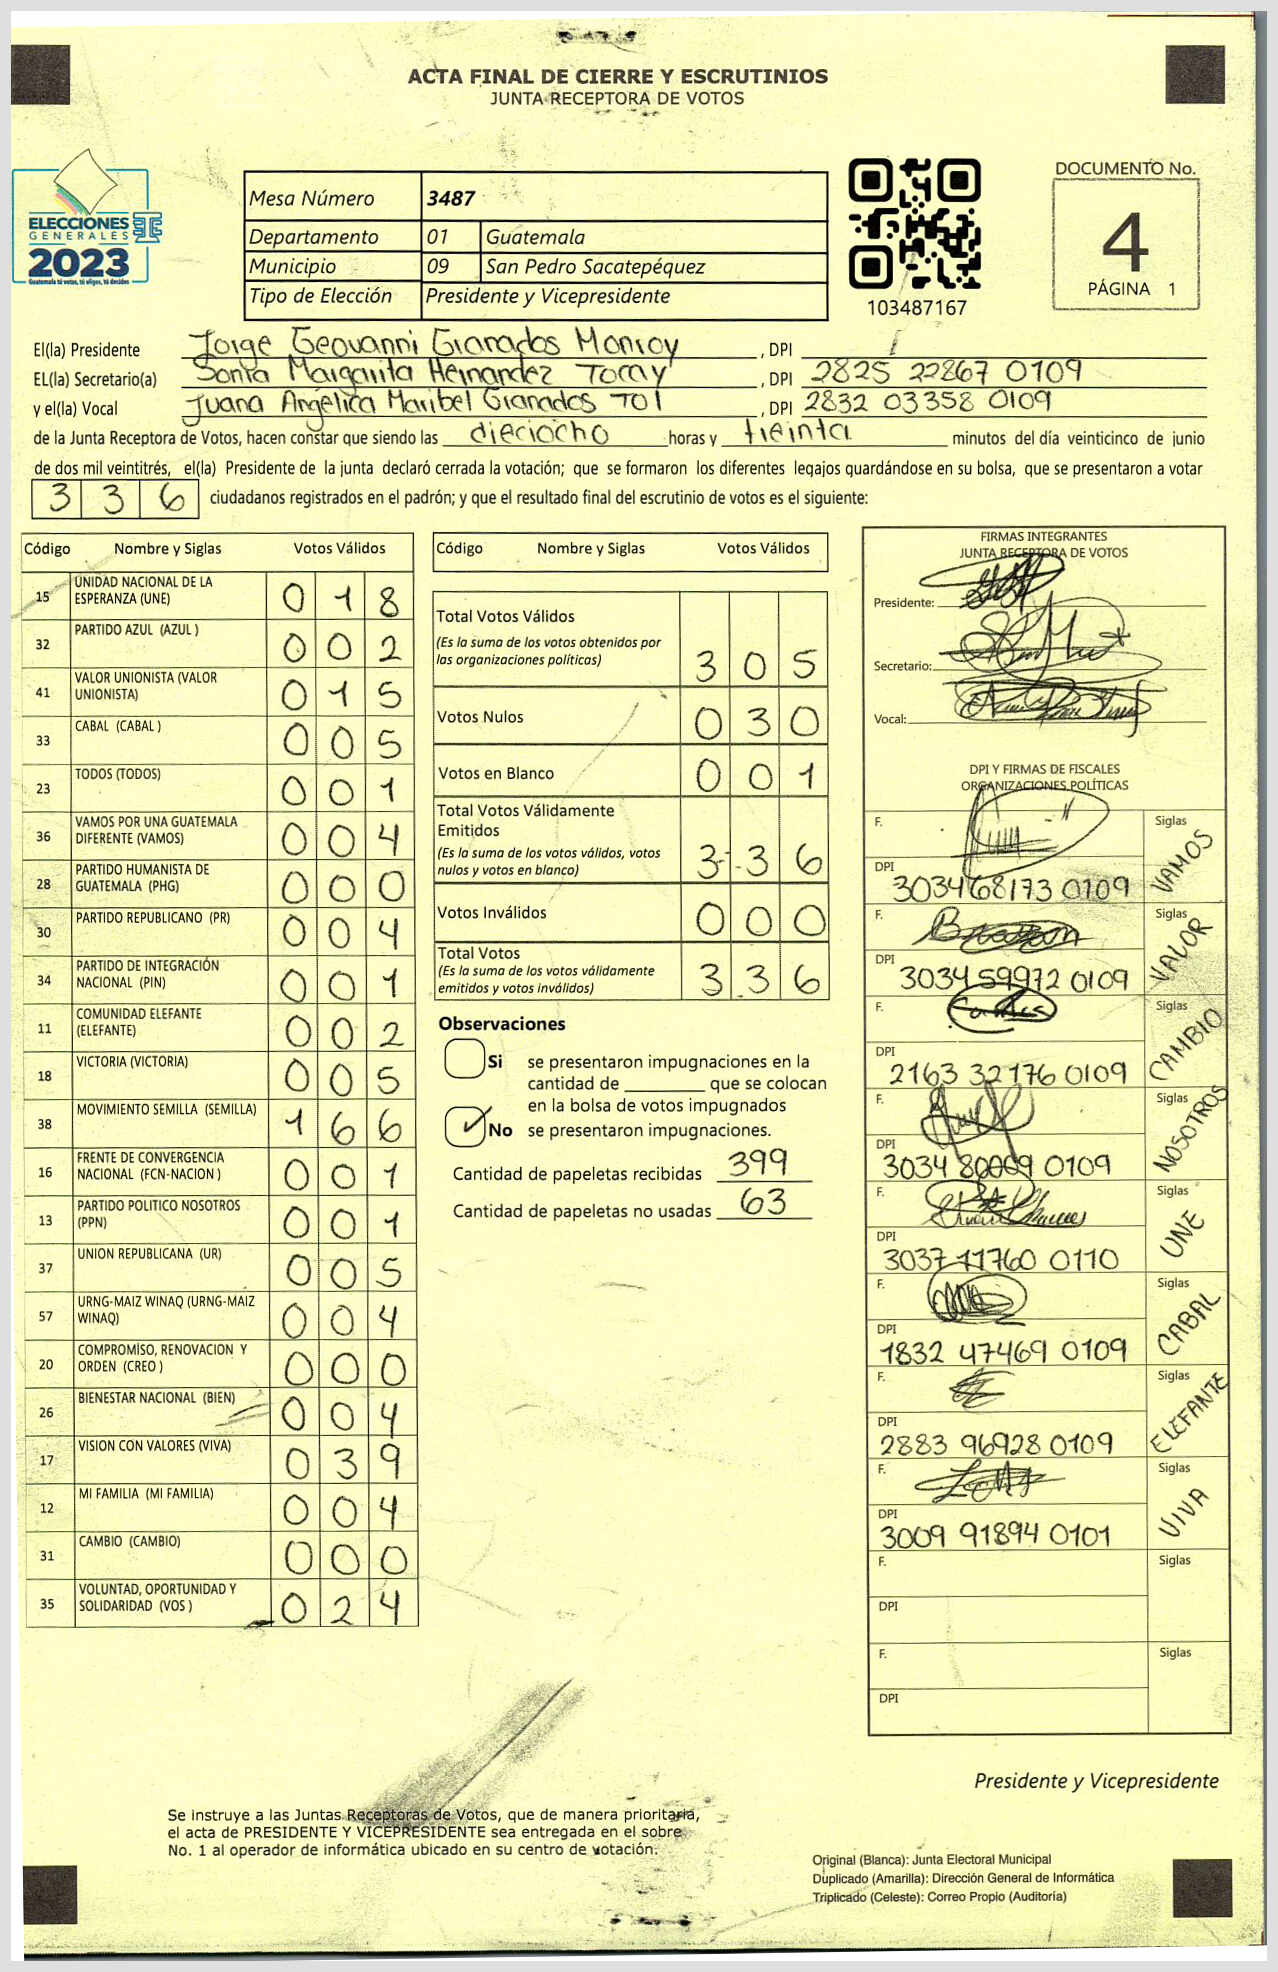 ACTA FINAL DE CIERRE Y ESCRUTINIOS
JUNTA RECEPTORA DE VOTOS
ELECCIONES
GENERALES
2023
Guatemala tú votas, tú eliges, tú decides
Mesa Número 3487
Departamento 01 Guatemala
Municipio 09 San Pedro Sacatepéquez
Tipo de Elección Presidente y Vicepresidente
103487167
DOCUMENTO No.
4
PÁGINA 1
El(la) Presidente Jorge Geovanni Granados Monroy , DPI
EL(la) Secretario(a) Sonia Margarita Hernandez , DPI 2825 22867 0109
y el(la) Vocal Juana Angelica Maribel Granados , DPI 2832 03358 0109
de la Junta Receptora de Votos, hacen constar que siendo las dieciocho horas y treinta minutos del día veinticinco de junio
de dos mil veintitrés, el(la) Presidente de la junta declaró cerrada la votación; que se formaron los diferentes legajos guardándose en su bolsa, que se presentaron a votar
336 ciudadanos registrados en el padrón; y que el resultado final del escrutinio de votos es el siguiente:
Código Nombre y Siglas Votos Válidos
15 UNIDAD NACIONAL DE LA ESPERANZA (UNE) 018
32 PARTIDO AZUL (AZUL ) 002
41 VALOR UNIONISTA (VALOR UNIONISTA) 015
33 CABAL (CABAL ) 005
23 TODOS (TODOS) 001
36 VAMOS POR UNA GUATEMALA DIFERENTE (VAMOS) 004
28 PARTIDO HUMANISTA DE GUATEMALA (PHG) 000
30 PARTIDO REPUBLICANO (PR) 004
34 PARTIDO DE INTEGRACIÓN NACIONAL (PIN) 001
11 COMUNIDAD ELEFANTE (ELEFANTE) 002
18 VICTORIA (VICTORIA) 005
38 MOVIMIENTO SEMILLA (SEMILLA) 166
16 FRENTE DE CONVERGENCIA NACIONAL (FCN-NACION ) 001
13 PARTIDO POLITICO NOSOTROS (PPN) 001
37 UNION REPUBLICANA (UR) 005
57 URNG-MAIZ WINAQ (URNG-MAIZ WINAQ) 004
20 COMPROMISO, RENOVACION Y ORDEN (CREO ) 000
26 BIENESTAR NACIONAL (BIEN) 004
17 VISION CON VALORES (VIVA) 039
12 MI FAMILIA (MI FAMILIA) 004
31 CAMBIO (CAMBIO) 000
35 VOLUNTAD, OPORTUNIDAD Y SOLIDARIDAD (VOS ) 024
Código Nombre y Siglas Votos Válidos
Total Votos Válidos
(Es la suma de los votos obtenidos por
las organizaciones políticas) 305
Votos Nulos 030
Votos en Blanco 001
Total Votos Válidamente
Emitidos
(Es la suma de los votos válidos, votos
nulos y votos en blanco) 336
Votos Inválidos 000
Total Votos
(Es la suma de los votos válidamente
emitidos y votos inválidos) 336
Observaciones
Si se presentaron impugnaciones en la
cantidad de ________ que se colocan
en la bolsa de votos impugnados
No se presentaron impugnaciones.
Cantidad de papeletas recibidas 399
Cantidad de papeletas no usadas 63
FIRMAS INTEGRANTES
JUNTA RECEPTORA DE VOTOS
Presidente:
Secretario:
Vocal:
DPI Y FIRMAS DE FISCALES
ORGANIZACIONES POLÍTICAS
F. Siglas VAMOS
DPI 3034681730109
F. Siglas VALOR
DPI 3034 59972 0109
F. Siglas CAMBIO
DPI 2163 32176 0109
F. Siglas NOSOTROS
DPI 3034 0109
F. Siglas UNE
DPI 3037 11760 0110
F. Siglas CABAL
DPI 1832 47469 0109
F. Siglas ELEFANTE
DPI 2883 96928 0109
F. Siglas VIVA
DPI 3009 91894 0101
F. Siglas
DPI
F. Siglas
DPI
Presidente y Vicepresidente
Se instruye a las Juntas Receptoras de Votos, que de manera prioritaria,
el acta de PRESIDENTE Y VICEPRESIDENTE sea entregada en el sobre
No. 1 al operador de informática ubicado en su centro de votación.
Original (Blanca): Junta Electoral Municipal
Duplicado (Amarilla): Dirección General de Informática
Triplicado (Celeste): Correo Propio (Auditoría)